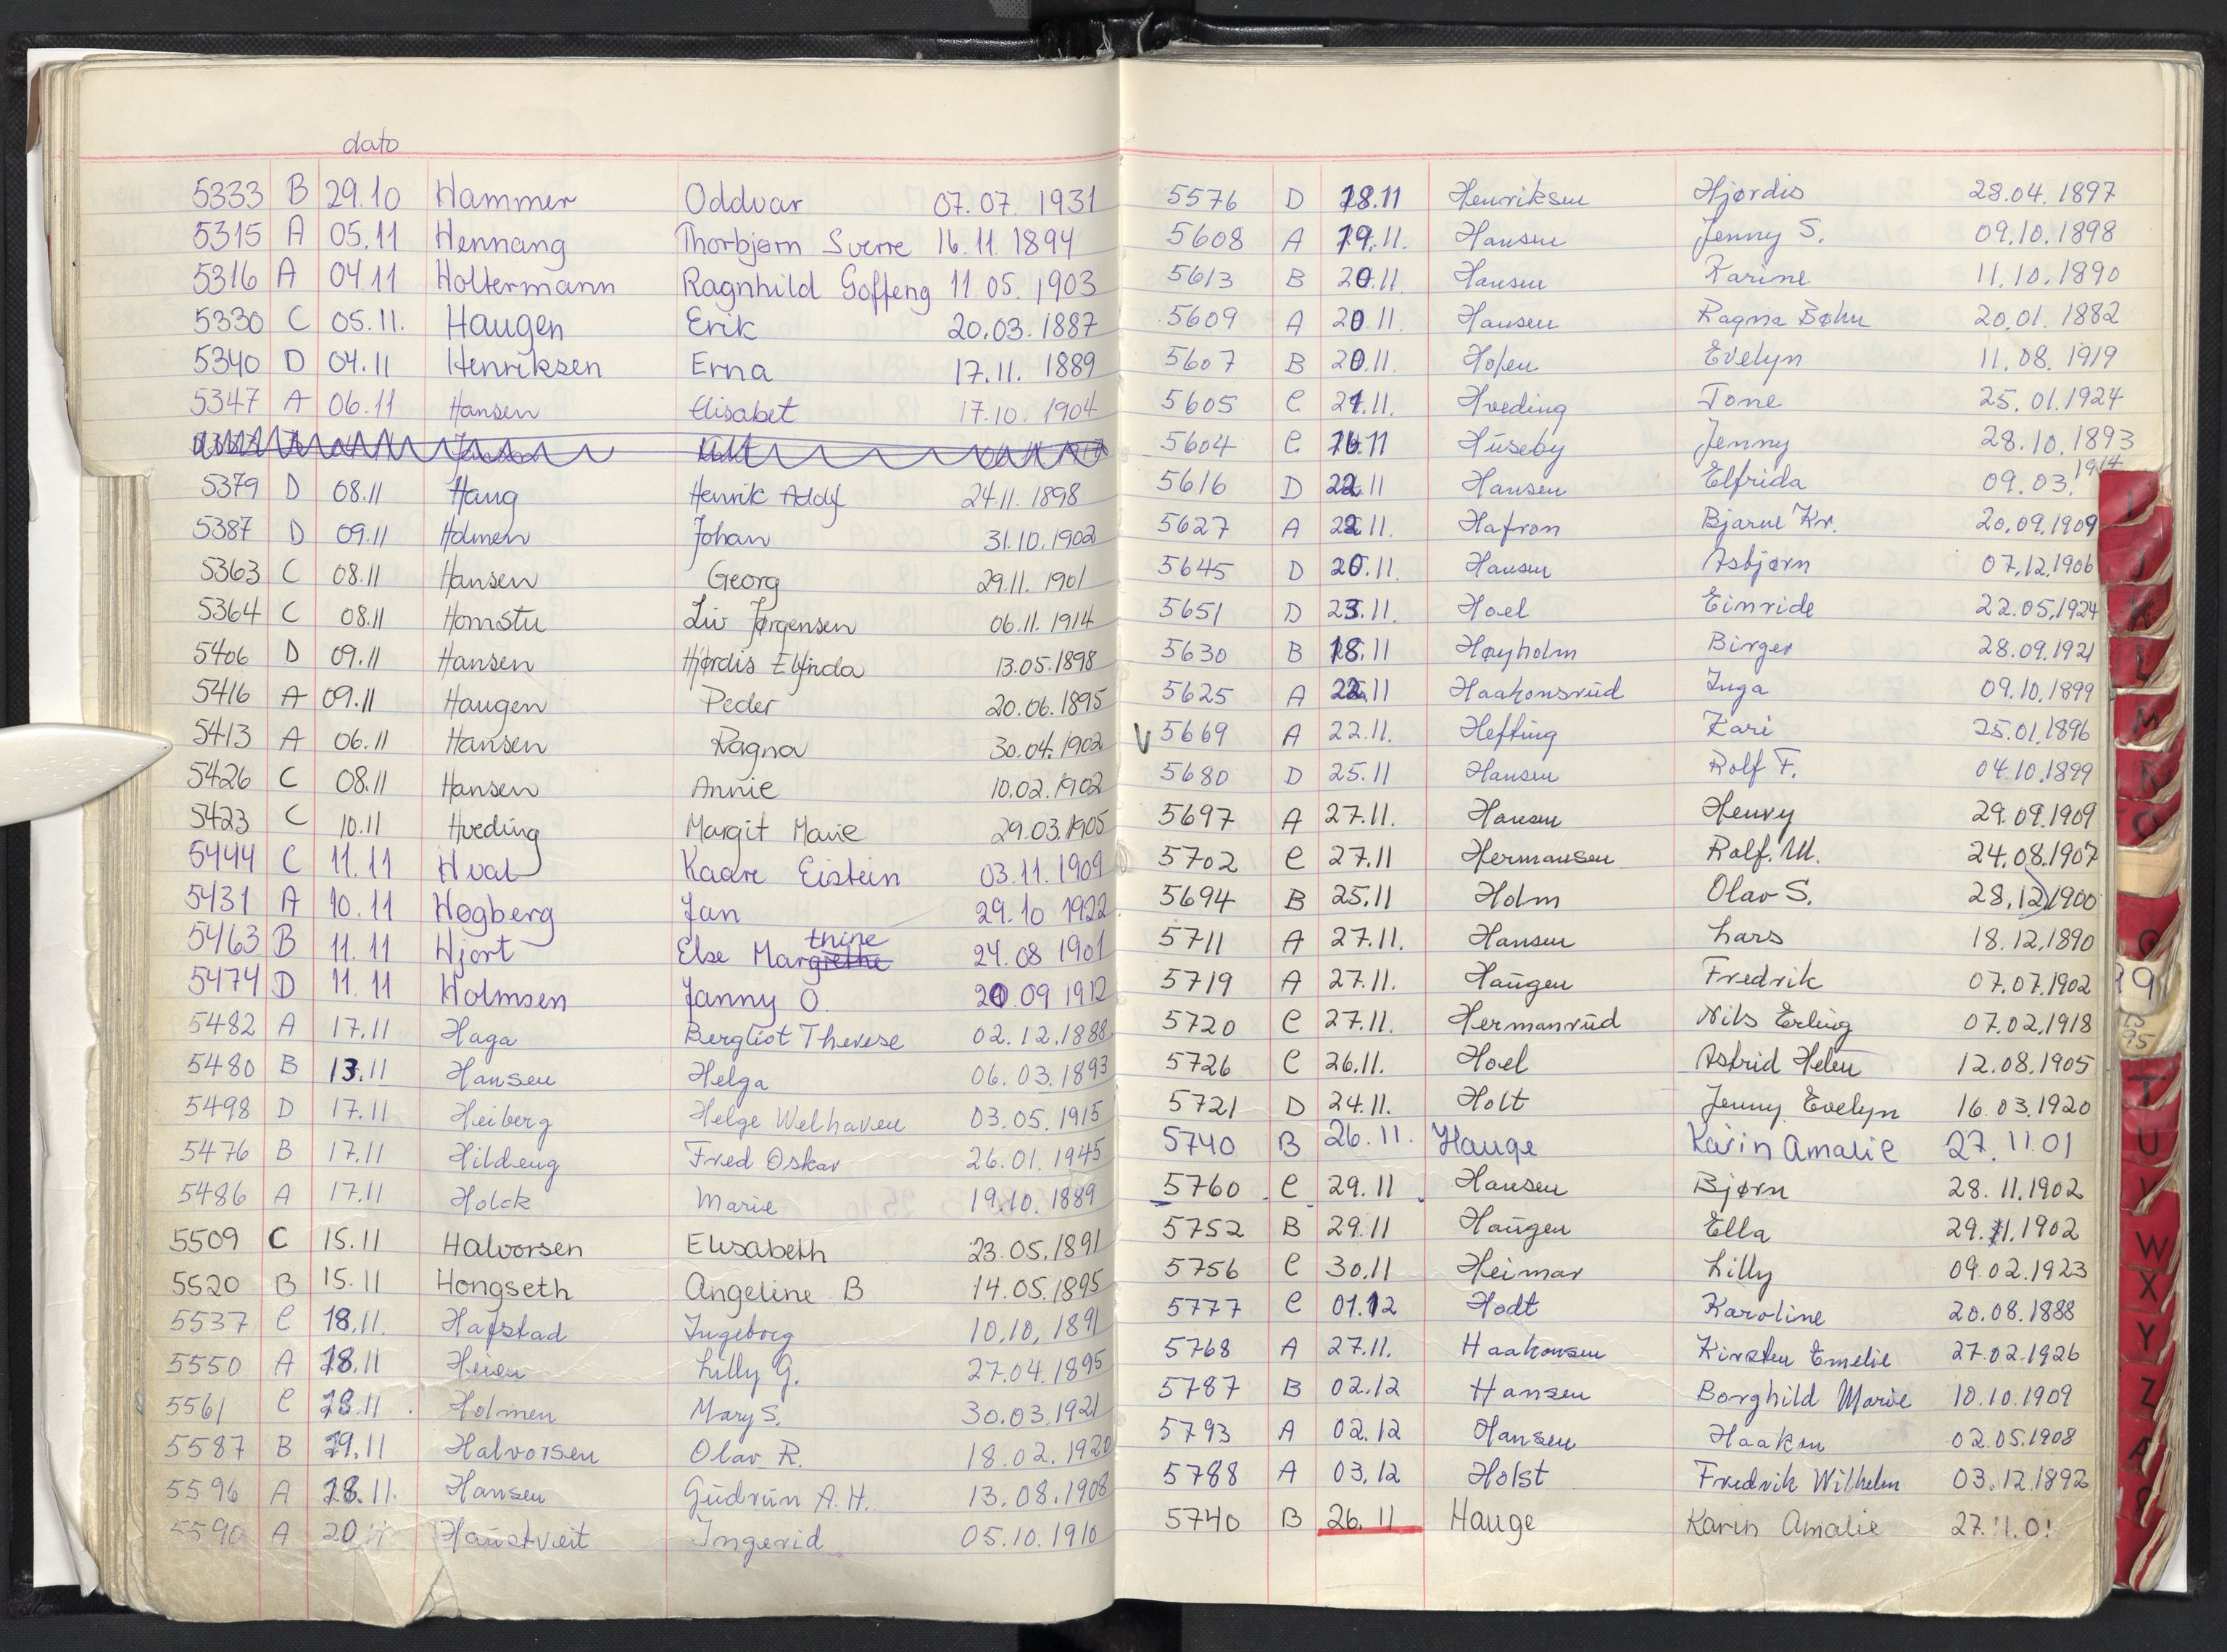 dato
5333 B 29.10 Hammer Oddvar 07.07. 1931
5315 A 05.11 Hennang Thorbjørn Sverre 16.11. 1894
5316 A 04.11 Holtermann Ragnhild Goffeng 11.05. 1903
5330 C 05.11. Haugen Erik 20.03. 1887
5340 D 04.11 Henriksen Erna 17.11. 1889
5347 A 06.11 Hansen Elisabet 17.10. 1904
5379 D 08.11 Haug Henrik Adolf 24.11. 1898
5387 D 09.11 Holmen Johan 31.10.1902
5363 C 08.11 Hansen Georg 29.11. 1901
5364 C 08.11 Homstu Liv Jørgensen 06.11. 1914
5406 D 09.11 Hansen Hjørdis Elfrida 13.05.1898
5416 A 09.11 Haugen Peder 20.06.1895
5413 A 06.11 Hansen Ragna 30.04.1902
5426 C 08.11 Hansen Annie 10.02.1902
5423 C 10.11 Hveding Margit Marie 29.03.1905
5444 C 11.11 Hval Kaare Eistein 03.11.1909
5431 A 10.11 Høgberg Jan 29.10 1922
5463 B 11.11 Hjort Else Margrethe thine 24.08 1901
5474 D 11.11 Holmsen Janny O. 20.09 1912
5482 A 17.11 Haga Bergliot Therese 02.12.1888
5480 B 13.11 Hansen Helga 06.03.1893
5498 D 17.11 Heiberg Helge Welhaven 03.05.1915
5476 B 17.11 Hildeng Fred Oskar 26.01.1945
5486 A 17.11 Holck Marie 19.10.1889
5509 C 15.11 Halvorsen Elisabeth 23.05.1891
5520 B 15.11 Hongseth Angeline B 14.05.1895
5537 C 18.11. Hafstad Ingeborg 10.10.1891
5550 A 18.11 Heien Lilly G. 27.04.1895
5561 C 18.11. Holmen Mary S. 30.03.1921
5587 B 19.11 Halvorsen Olav R. 18.02.1920
5596 A 18.11. Hansen Gudrun A.H. 13.08.1908
5590 A 20.11 Haustveit Ingerid 05.10.1910
5576 D 18.11 Henriksen Hjørdis 28.04.1897
5608 A 19.11. Hansen Jenny S. 09.10.1898
5613 B 20.11. Hansen Karine 11.10.1890
5609 A 20.11. Hansen Ragna Bøhn 20.01.1882
5607 B 20.11. Hofen Evelyn 11.08.1919
5605 C 21.11. Hveding Tone 25.01.1924
5604 C 16.11 Huseby Jenny 28.10.1893
5616 D 22.11 Hansen Elfrida 09.03.1914
5627 A 22.11. Hafron Bjarne Kr. 20.09.1909
5645 D 20.11. Hansen Asbjørn 07.12.1906
5651 D 23.11. Hoel Einride 22.05.1924
5630 B 18.11 Høyholm Birger 28.09.1921
5625 A 22.11 Haakonsrud Inga 09.10.1899
V 5669 A 22.11. Hefting Kari 25.01.1896
5680 D 25.11 Hansen Rolf F. 04.10.1899
5697 A 27.11. Hansen Henry 29.09.1909
5702 C 27.11 Hermansen Rolf. M. 24.08.1907
5694 B 25.11 Holm Olav S. 28.12.1900
5711 A 27.11. Hansen Lars 18.12.1890
5719 A 27.11. Haugen Fredrik 07.07.1902
5720 C 27.11. Hermanrud Nils Erling 07.02.1918
5726 C 26.11. Hoel Astrid Helen 12.08.1905
5721 D 24.11. Holt Jenny Evelyn 16.03.1920
5740 B 26.11. Hauge Karin Amalie 27.11.01
5760 C 29.11 Hansen Bjørn 28.11.1902
5752 B 29.11 Haugen Ella 29.11.1902
5756 C 30.11 Heimar Lilly 09.02.1923
5777 C 01.12 Hodt Karoline 20.08.1888
5768 A 27.11. Haakonsen Kirsten Emelie 27.02.1926
5787 B 02.12 Hansen Borghild Marie 10.10.1909
5793 A 02.12 Hansen Haakon 02.05.1908
5788 A 03.12 Holst Fredrik Wilhelm 03.12.1892
5740 B 26.11 Hauge Karin Amalie 27.11.01
I
J
K
L
M
N
O
Q
T
U
V
W
X
Y
Z